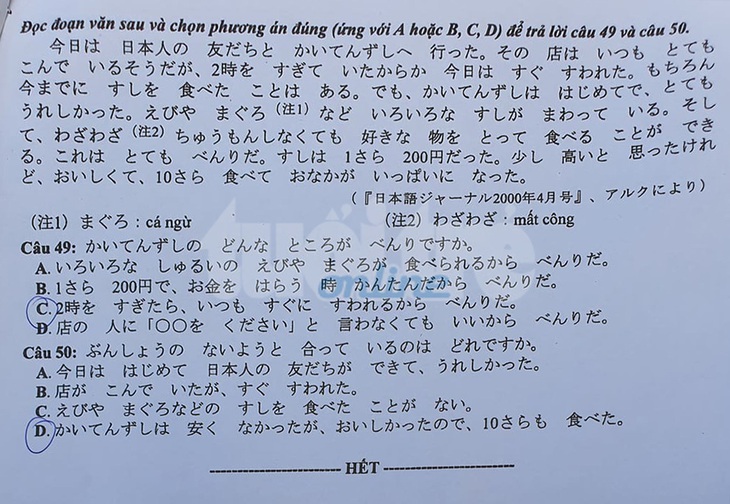 Đọc đoạn văn sau và chọn phương án đúng (ứng với A hoặc B, C, D) để trả lời câu 49 và câu 50.
今日は 日本人の 友だちと かいてんずしへ 行った。その 店は いつも とても
こんで いるそうだが、2時を すぎて いたからか 今日は すぐ すわれた。もちろん
今までに すしを 食べた ことは ある。でも、かいてんずしは はじめてで、とても
うれしかった。えびや まぐろ(注1) など いろいろな すしが まわって いる。そし
て、わざわざ(注2) ちゅうもんしなくても 好きな 物を とって 食べる ことが でき
る。これは とても べんりだ。すしは 1さら 200円だった。少し 高いと 思ったけれ
ど、おいしくて、10さら 食べて おなかが いっぱいに なった。
(『日本語ジャーナル2000年4月号』、アルクにより)
(注1) まぐろ : cá ngừ (注2) わざわざ : mất công
Câu 49: かいてんずしの どんな ところが べんりですか。
A. いろいろな しゅるいの えびや まぐろが 食べられるから べんりだ。
B. 1さら 200円で、お金を はらう 時 かんたんだから べんりだ。
C. 2時を すぎたら、いつも すぐに すわれるから べんりだ。
D. 店の 人に「〇〇を ください」と 言わなくても いいから べんりだ。
Câu 50: ぶんしょうの ないようと 合って いるのは どれですか。
A. 今日は はじめて 日本人の 友だちが できて、うれしかった。
B. 店が こんで いたが、すぐ すわれた。
C. えびや まぐろなどの すしを 食べた ことが ない。
D. かいてんずしは 安く なかったが、おいしかったので、10さらも 食べた。
HẾT
tuổi trẻ
online